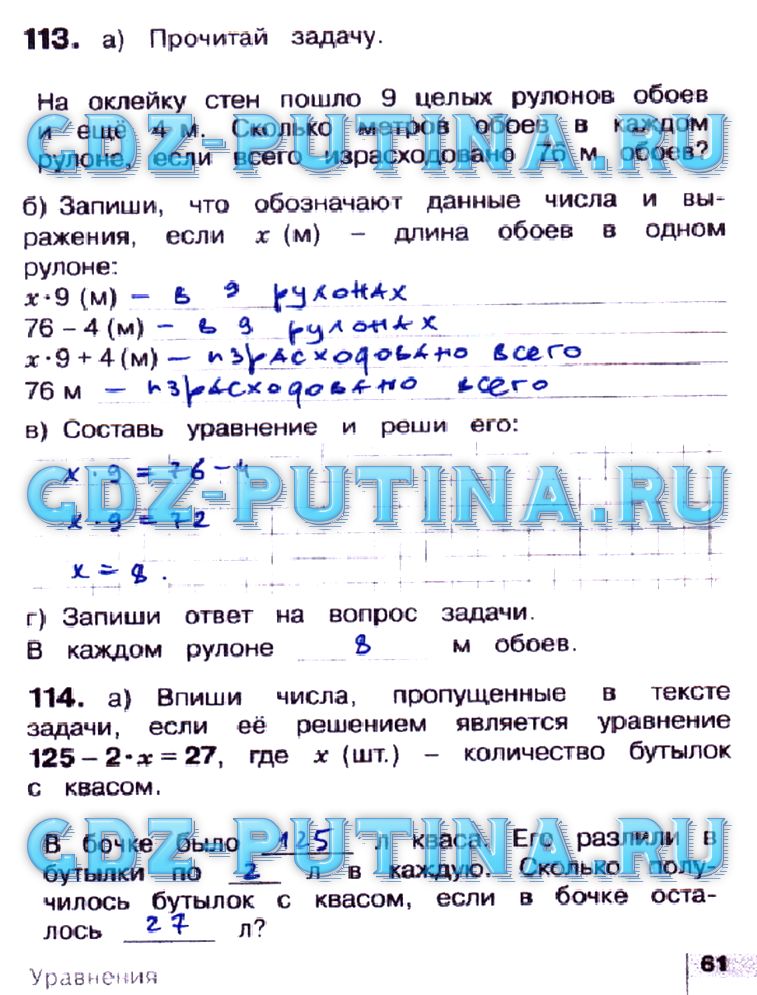 113. а) Прочитай задачу.
На оклейку стен пошло 9 целых рулонов обоев
и ещё 4 м. Сколько метров обоев в каждом
GDZ-PUTINA.RU
рулоне, если всего израсходовано 76 м обоев?
б) Запиши, что обозначают данные числа и вы-
ражения, если x (м) – длина обоев в одном
рулоне:
x·9 (м) – в 9 рулонах
76 – 4 (м) – в 9 рулонах
x·9 + 4 (м) – израсходовано всего
76 м – израсходовано всего
в) Составь уравнение и реши его:
x · 9 = 76 – 4
GDZ-PUTINA.RU
x · 9 = 72
x = 8.
г) Запиши ответ на вопрос задачи.
В каждом рулоне 8 м обоев.
114. а) Впиши числа, пропущенные в тексте
задачи, если её решением является уравнение
125 – 2·x = 27, где x (шт.) – количество бутылок
с квасом.
В бочке было 125 л кваса. Его разлили в
GDZ-PUTINA.RU
бутылки по 2 л в каждую. Сколько полу-
чилось бутылок с квасом, если в бочке оста-
лось 27 л?
Уравнения
61